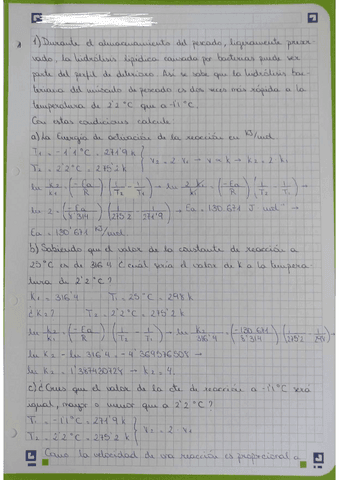 1) Durante el almacenamiento del pescado, ligeramente preser-
vado, la hidrólisis lipídica causada por bacterias puede ser
parte del perfil de deterioro. Así se sabe que la hidrólisis bac-
teriana del músculo de pescado es dos veces más rápida a la
temperatura de 2'2 °C que a -1'1 °C.
Con estas condiciones calcule
a) La Energía de activación de la reacción en KJ/mol.
T₁ = -1'1 °C = 271'9 K
T₂ = 2'2 °C = 275'2 K } r₂ = 2·r₁ → r → k → k₂ = 2·k₁
ln k₂/k₁ = (-Ea/R) (1/T₂ - 1/T₁) → ln 2·k₁/k₁ = (-Ea/R) (1/T₂ - 1/T₁) →
ln 2 = (-Ea/8'314) (1/275'2 - 1/271'9) → Ea = 130.671 J mol⁻¹ →
Ea = 130'671 KJ/mol.
b) Sabiendo que el valor de la constante de reacción a
25 °C es de 316'4 ¿cuál sería el valor de k a la tempera-
tura de 2'2 °C?
K₁ = 316'4 T₁ = 25 °C = 298 K
¿K₂? T₂ = 2'2 °C = 275'2 K
ln k₂/k₁ = (-Ea/R) (1/T₂ - 1/T₁) → ln k₂/316'4 = (-130.671/8'314) (1/275'2 - 1/298) →
ln K₂ - ln 316'4 =
ln K₂ = → K₂ = 4.
c) ¿Crees que el valor de la cte de reacción a -1'1 °C será
igual, mayor o menor que a 2'2 °C?
T₁ = -1'1 °C = 271'9 K
T₂ = 2'2 °C = 275'2 K } r₂ = 2·r₁
Como la velocidad de una reacción es proporcional a